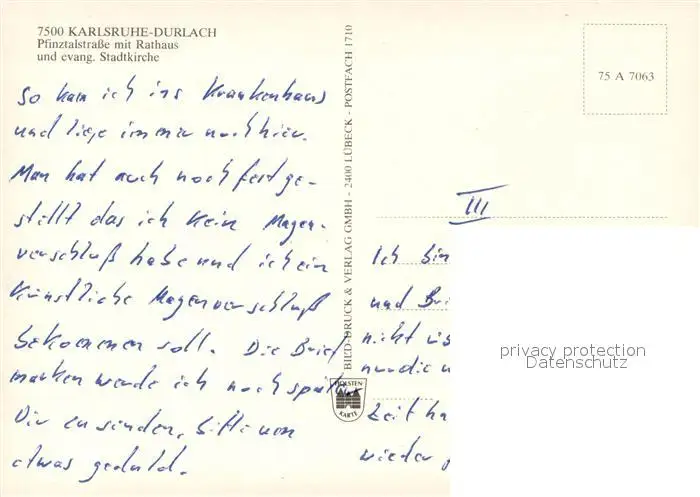 7500 KARLSRUHE-DURLACH
Pfinztalstraße mit Rathaus
und evang. Stadtkirche
So kam ich ins Krankenhaus
und liege immer noch hier.
Man hat auch noch festge-
stellt das ich kein Magen-
verschluß habe und ich ein
künstliche Magenverschluß
bekommen soll. Die Brief
marken werde ich noch später
Dir zu senden, bitte um
etwas geduld.
BILD-DRUCK & VERLAG GMBH - 2400 LÜBECK - POSTFACH 1710
HOLSTEN
KARTE
75 A 7063
III
Ich bin
und
nicht
nur die
Zeit ha
wieder
privacy protection
Datenschutz